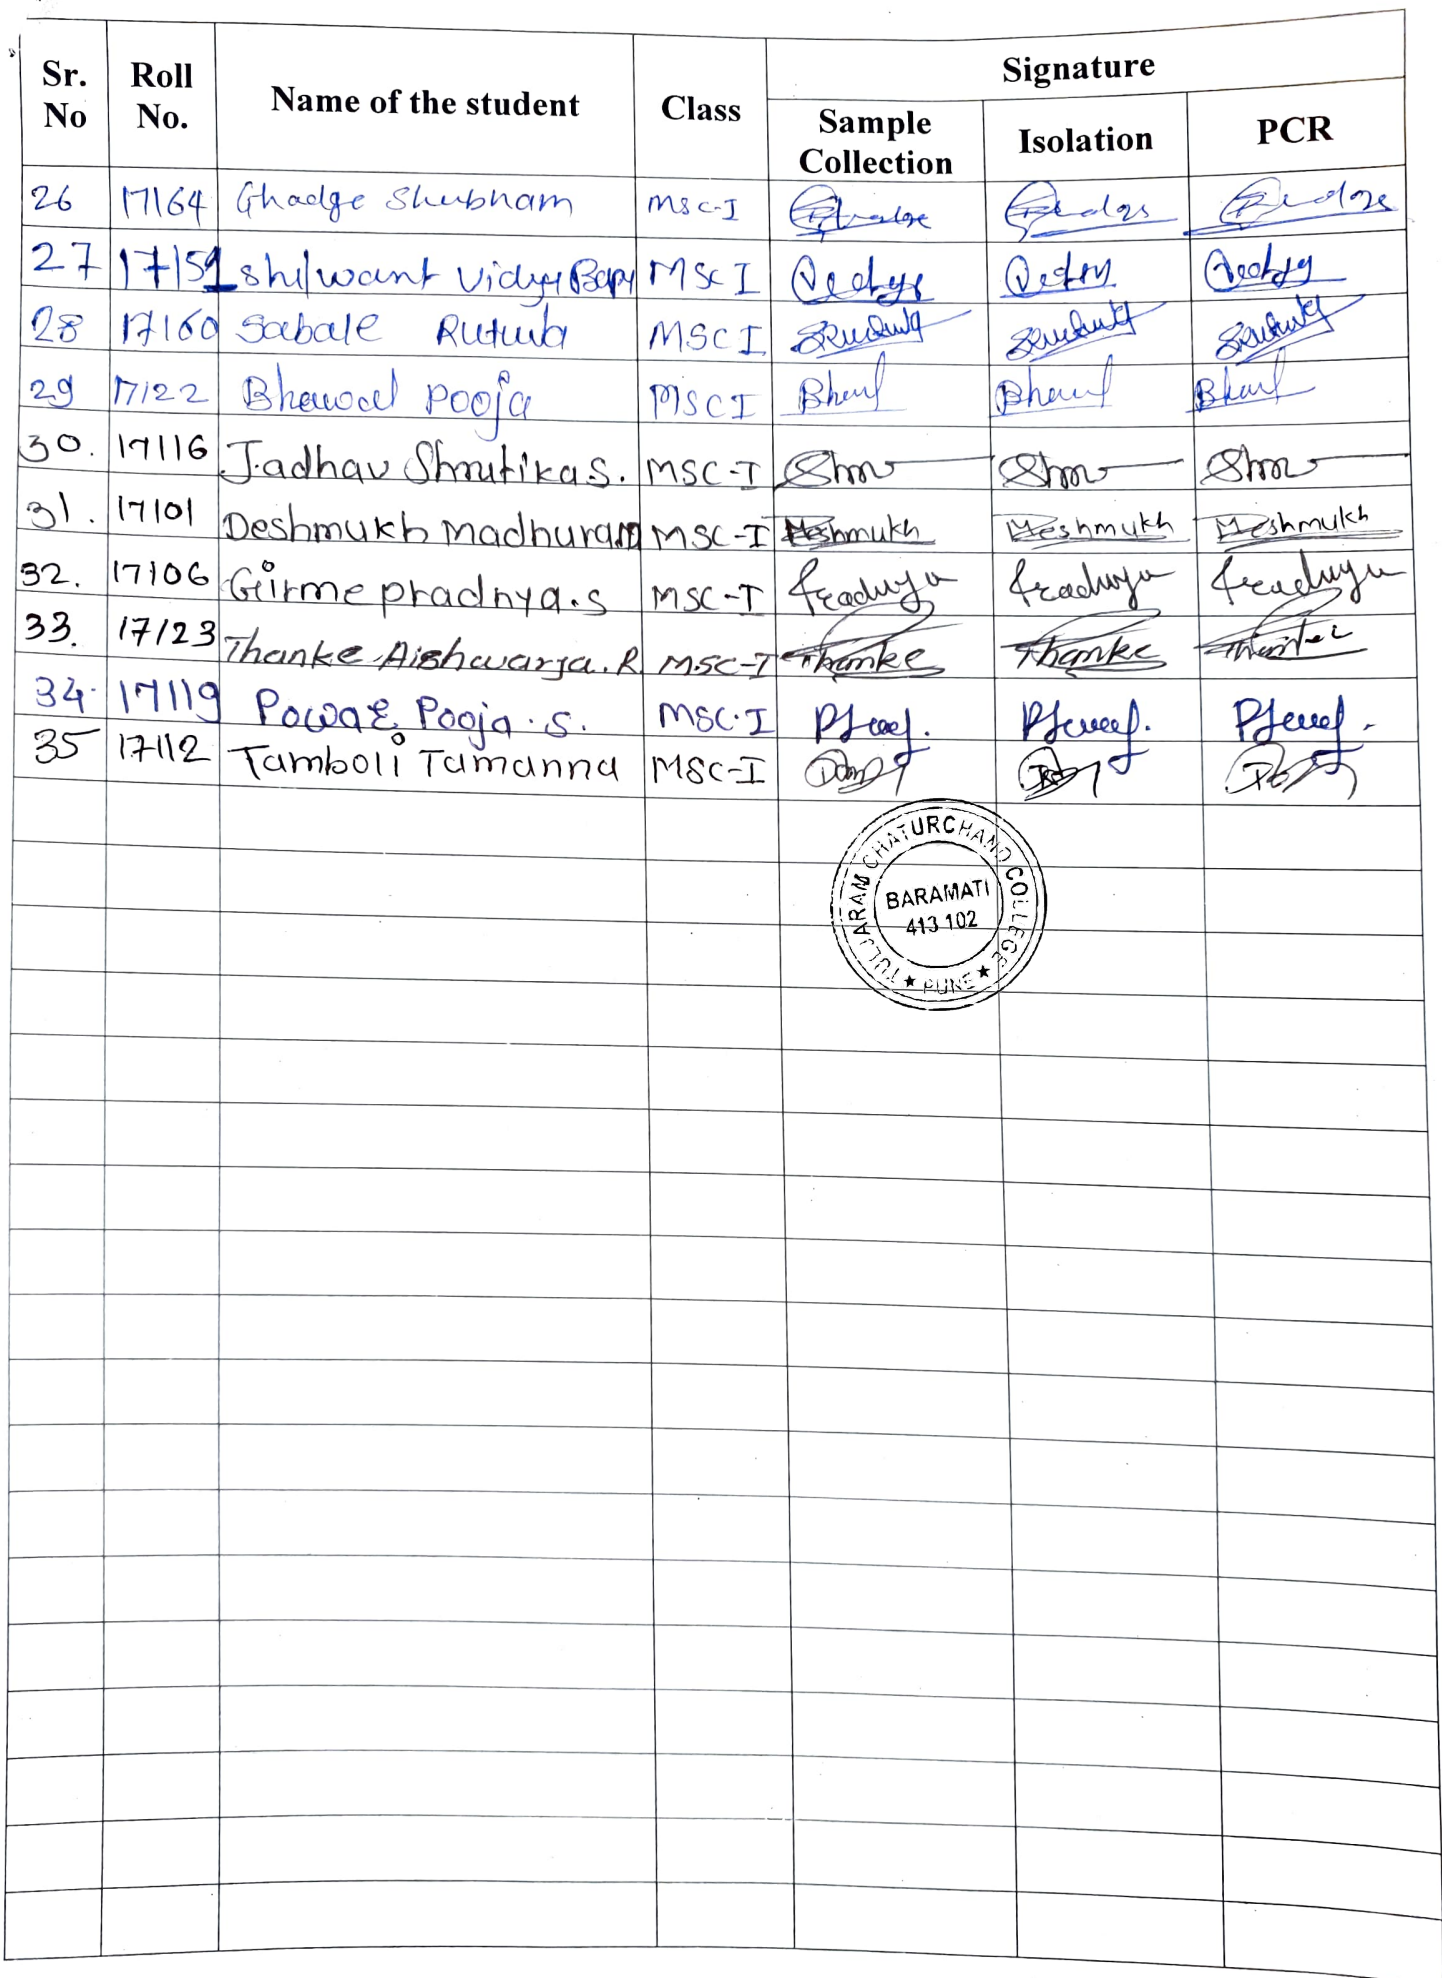 Sr. No Roll No. Name of the student Class Signature
Sample Collection Isolation PCR
26 17164 Ghadge Shubham MSC-I
27 17151 Shilwant Vidya Bapu MSC I
28 17160 Sabale Rutuja MSC I
29 17122 Pooja MSC I
30. 17116 Jadhav Shrutika S. MSC-I
31. 17101 Deshmukh Madhura MSC-I Deshmukh Deshmukh Deshmukh
32. 17106 Girme pradnya.S MSC-I Pradnya Pradnya Pradnya
33. 17123 Thanke Aishwarya.R MSC-I Thanke Thanke Thanke
34. 17119 Pawar Pooja.S. MSC.I
35 17112 Tamboli Tamanna MSC-I
TULJARAM CHATURCHAND COLLEGE
BARAMATI
413 102
★ PUNE ★